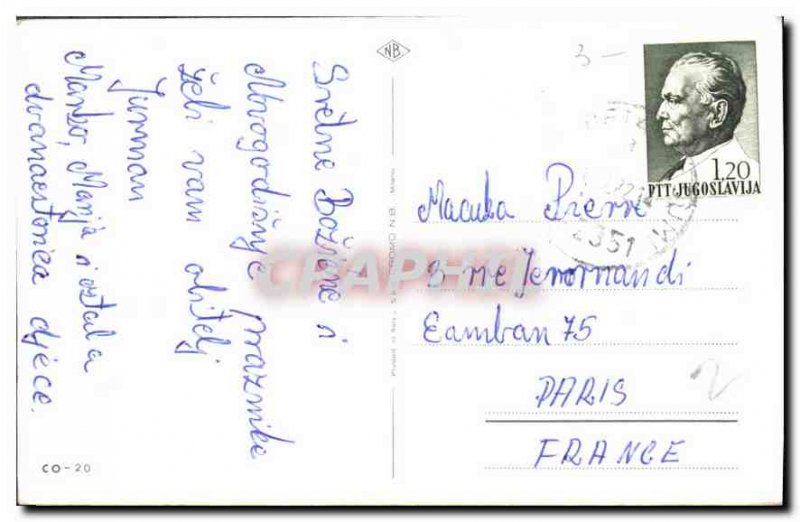 Sretne Božićne i
Novogodišnje praznike
želi vam obitelj
Jurman
Marko, Marija i ostala
dvanaestorica djece.
CO-20
NB
Printed in Italy
PROMO N.B. Milano
3 -
1.20
PTT JUGOSLAVIJA
2351
Macuka Pierre
3 rue Jenormandi
Eamban 75
PARIS
FRANCE
2
CPAPHIL